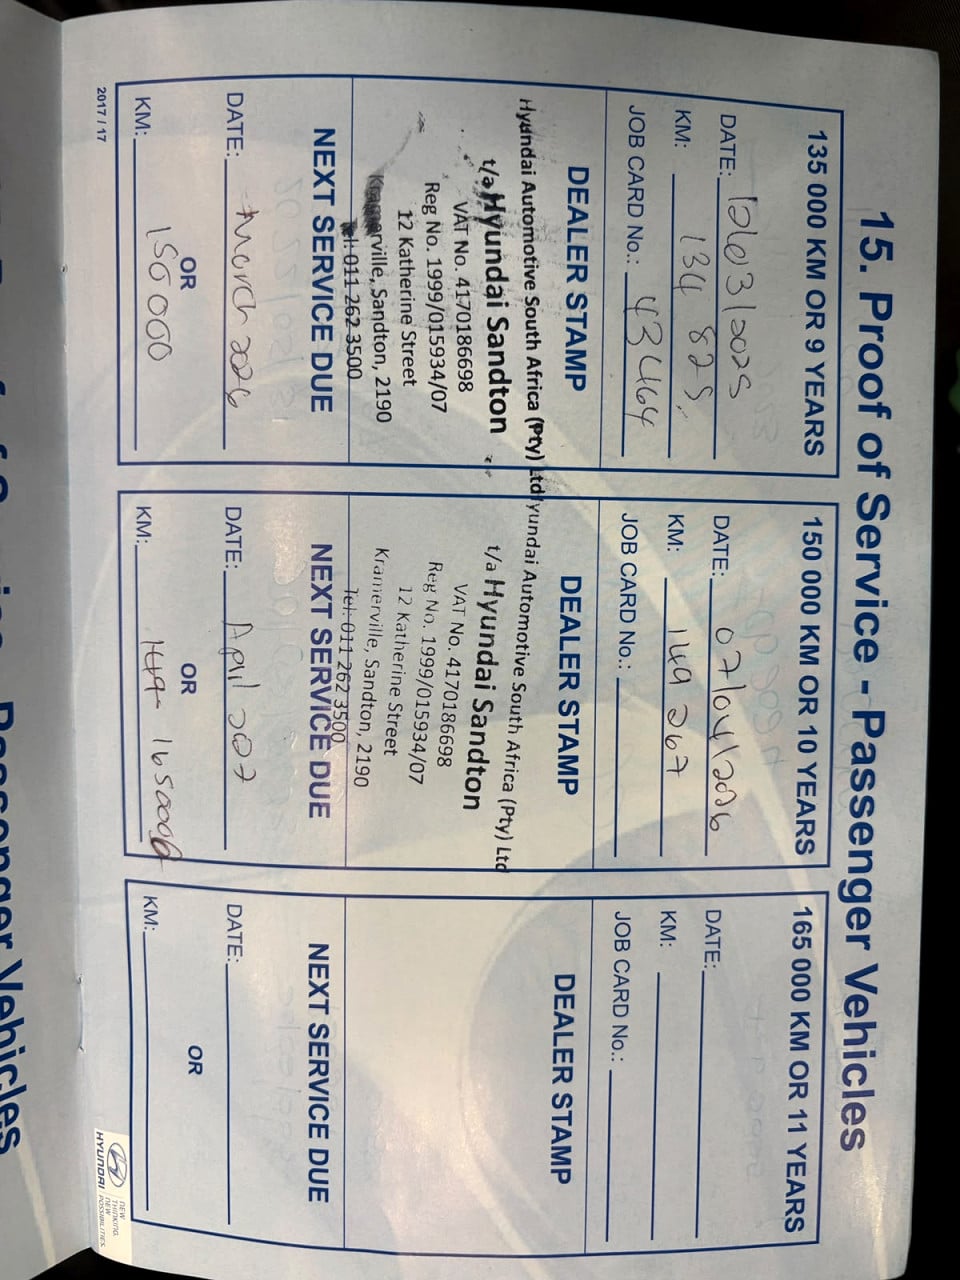 15. Proof of Service - Passenger Vehicles
135 000 KM OR 9 YEARS
DATE: 12/03/2025
KM: 134 825
JOB CARD No.: 43464
DEALER STAMP
Hyundai Automotive South Africa (Pty) Ltd
t/a Hyundai Sandton
VAT No. 4170186698
Reg No. 1999/015934/07
12 Katherine Street
Kramerville, Sandton, 2190
Tel: 011 262 3500
NEXT SERVICE DUE
DATE: March 2026
OR
KM: 150 000
150 000 KM OR 10 YEARS
DATE: 07/04/2026
KM: 149 267
JOB CARD No.:
DEALER STAMP
Hyundai Automotive South Africa (Pty) Ltd
t/a Hyundai Sandton
VAT No. 4170186698
Reg No. 1999/015934/07
12 Katherine Street
Kramerville, Sandton, 2190
Tel: 011 262 3500
NEXT SERVICE DUE
DATE: April 2027
OR
KM: 165000
165 000 KM OR 11 YEARS
DATE:
KM:
JOB CARD No.:
DEALER STAMP
NEXT SERVICE DUE
DATE:
OR
KM:
2017 / 17
HYUNDAI
NEW
THINKING.
NEW
POSSIBILITIES.
Passenger Vehicles